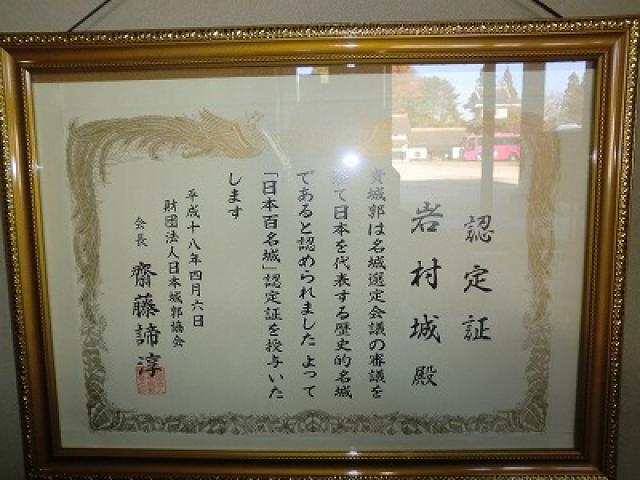 認定証
岩村城殿
貴城郭は名城選定会議の審議を
経て日本を代表する歴史的名城
であると認められました よって
「日本百名城」認定証を授与いた
します
平成十八年四月六日
財団法人日本城郭協会
会長 齋藤諦淳